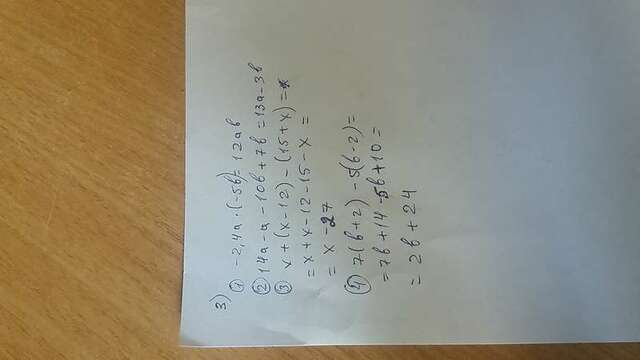 3)
① -2,4a · (-5b) = 12ab
② 14a - a - 10b + 7b = 13a - 3b
③ x + (x - 12) - (15 + x) =
= x + x - 12 - 15 - x =
= x - 27
④ 7(b + 2) - 5(b - 2) =
= 7b + 14 - 5b + 10 =
= 2b + 24